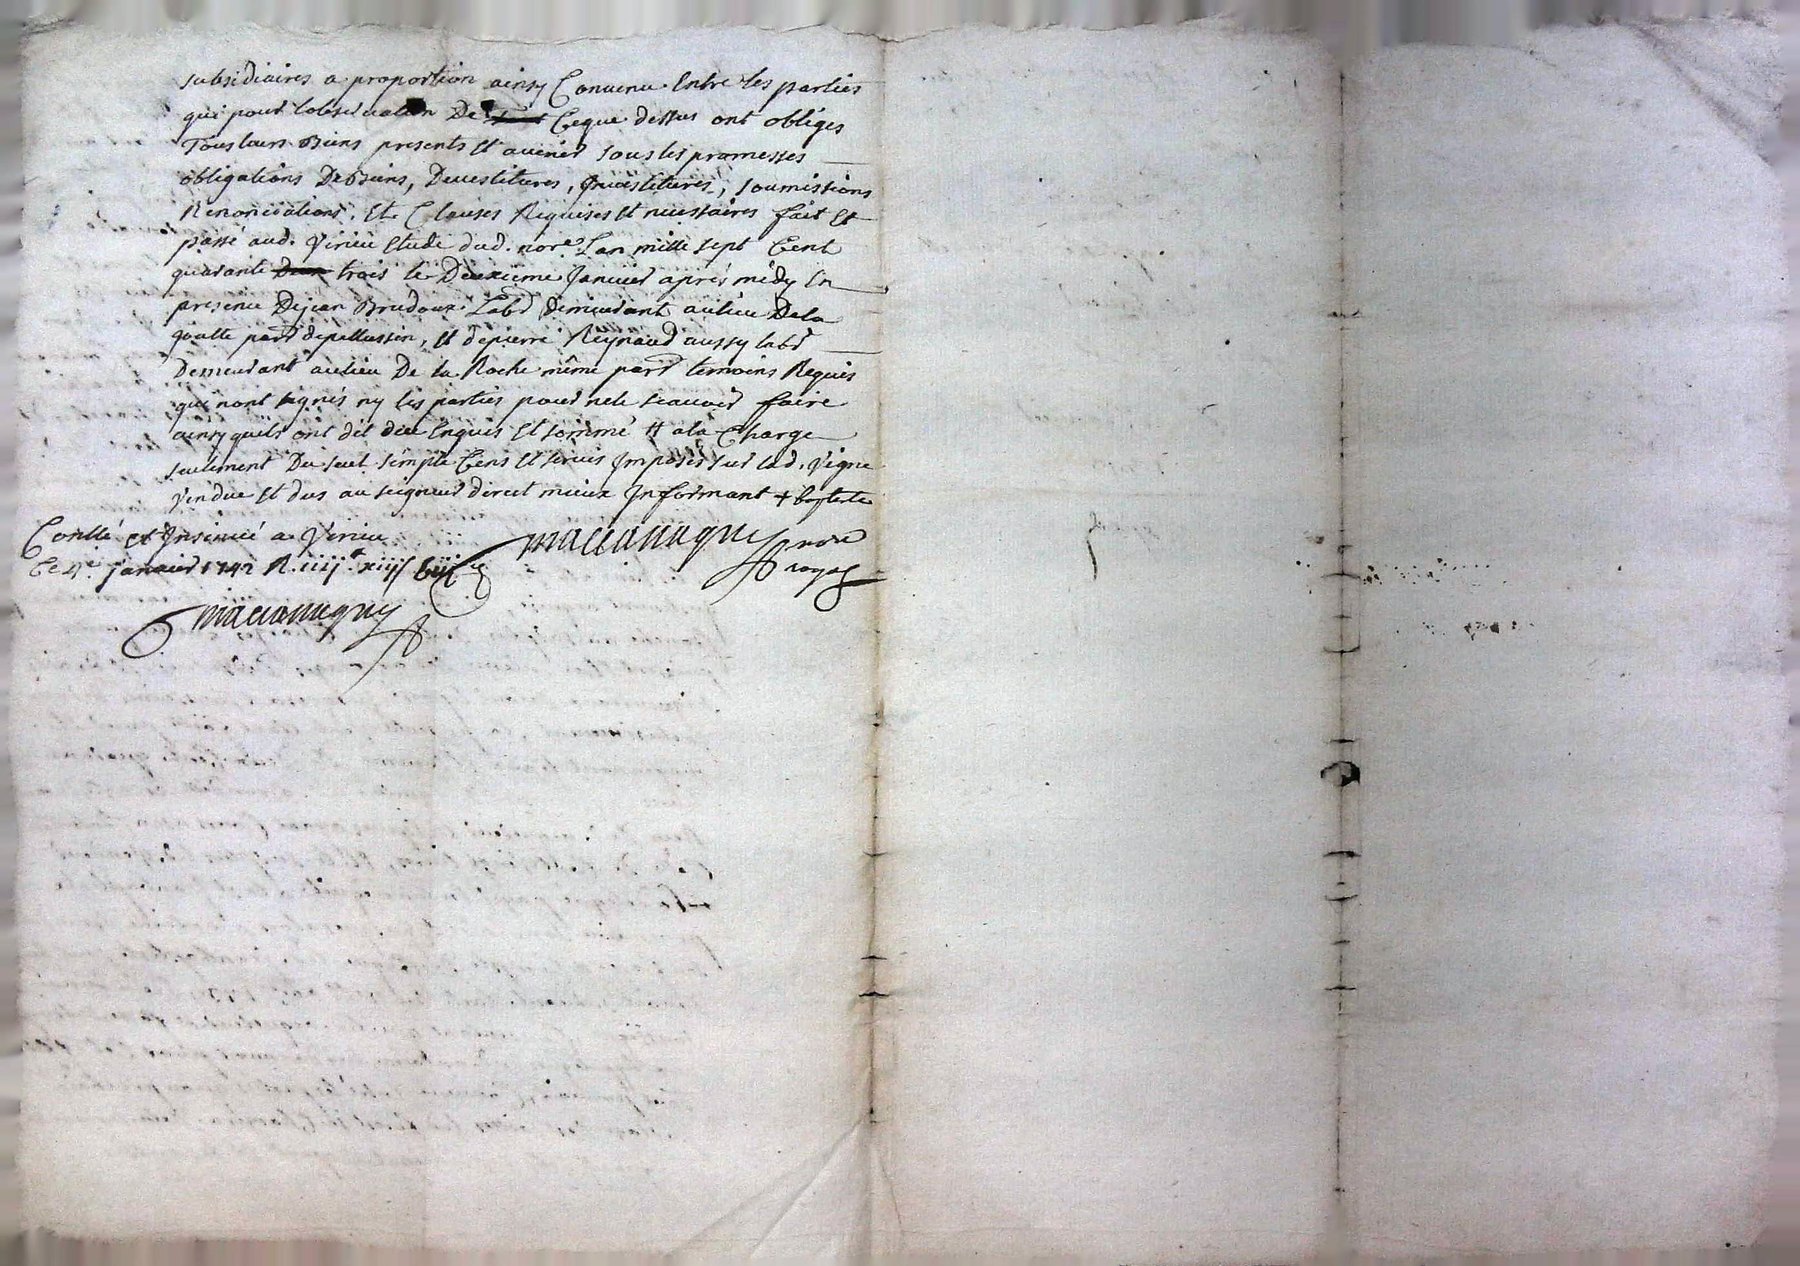 subsidiaires a proportion ainsy Convenu Entre les parties
qui pour lobservation De Ceque dessus ont obligés
Tous leurs Biens presents Et avenir sous les promesses
obligations De Biens, Devestitures, Jnvestitures, soumissions
Renonciations, Et Clauses Requises Et necessaires fait Et
passé aud. Virieu Etude dud. nore. Lan mille sept Cent
quarante trois le Deuxieme Janvier aprés midy En
presence De jean Brudoux Labr Demeurant au lieu Dela
goutte parr depellussin, Et de pierre Reynaud aussy labr
Demeurant au lieu De la Roche même parr temoins Requis
qui nont signés ny les parties pour ne le scavoir faire
ainsy quils ont dit Enquis Et sommé # a la Charge
seulement Du seul simple Cens Et servis Jmposés sur lad. Vigne
Vendue Et dus au seigneur direct mieux Jnformant +
Conllé et Jnsinué a Virieu
Ce 4e. janvier 1742 R. iiij
nore
royal